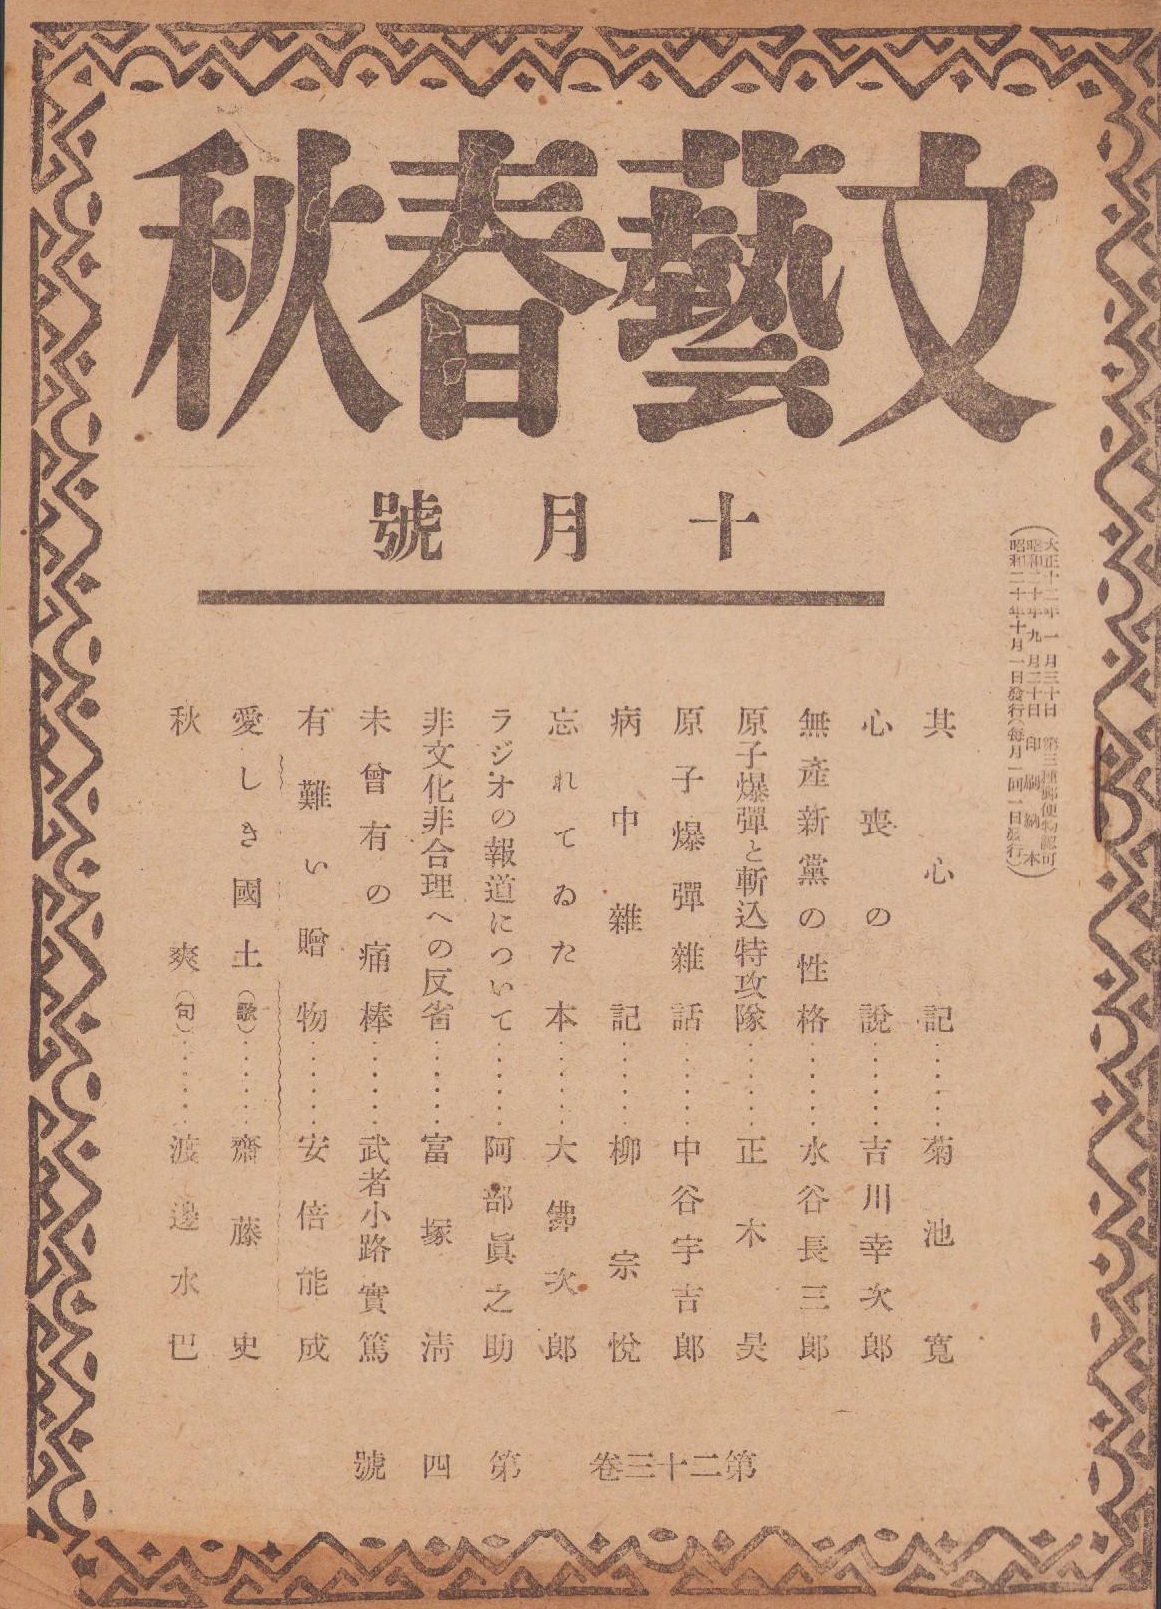 文藝春秋
十月號
(大正十二年一月三十日第三種郵便物認可
昭和二十年九月二十日印刷納本
昭和二十年十月一日發行(每月一回一日發行)
其心記……菊池寬
心喪の說……吉川幸次郎
無產新黨の性格……水谷長三郎
原子爆彈と斬込特攻隊……正木昊
原子爆彈雜話……中谷宇吉郎
病中雜記……柳宗悅
忘れてゐた本……大佛次郎
ラジオの報道について……阿部眞之助
非文化非合理への反省……富塚淸
未曾有の痛棒……武者小路實篤
有難い贈物……安倍能成
愛しき國土(歌)……齋藤史
秋爽(句)……渡邊水巴
第二十三卷 第四號